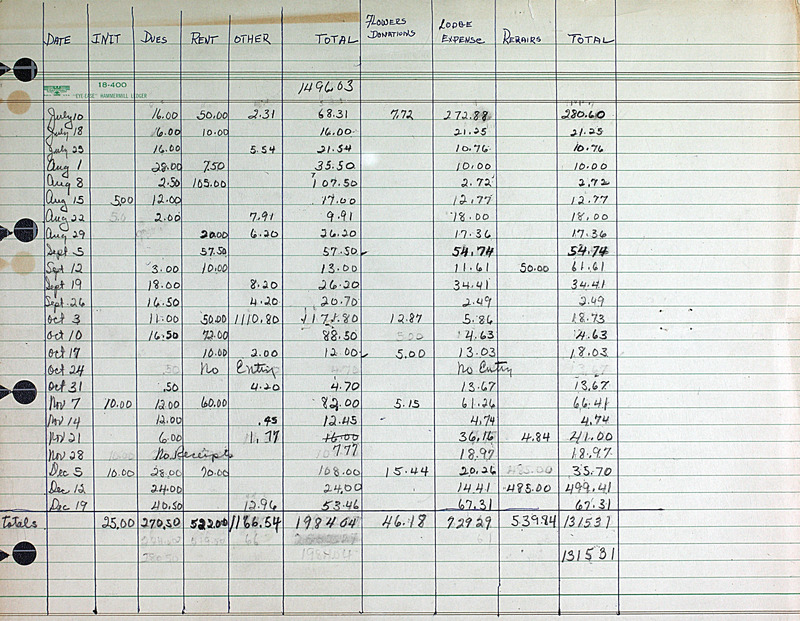 FLOWERS LODGE
DATE INIT DUES RENT OTHER TOTAL DONATIONS EXPENSE REPAIRS TOTAL
18-400
"EYE-EASE" HAMMERMILL LEDGER
149603
July 10 16.00 50.00 2.31 68.31 7.72 272.88 280.60
July 18 6.00 10.00 16.00 21.25 21.25
July 25 16.00 5.54 21.54 10.76 10.76
Aug 1 28.00 7.50 35.50 10.00 10.00
Aug 8 2.50 105.00 107.50 2.72 2.72
Aug 15 5.00 12.00 17.00 12.77 12.77
Aug 22 5.0 2.00 7.91 9.91 18.00 18.00
Aug 29 20.00 6.20 26.20 17.36 17.36
Sept 5 57.50 57.50 54.74 54.74
Sept 12 3.00 10.00 13.00 11.61 50.00 61.61
Sept 19 18.00 8.20 26.20 34.41 34.41
Sept 26 16.50 4.20 20.70 2.49 2.49
Oct 3 11.00 50.00 1110.80 1171.80 12.87 5.86 18.73
Oct 10 16.50 72.00 88.50 4.63 4.63
Oct 17 10.00 2.00 12.00 5.00 13.03 18.03
Oct 24 .50 No Entry No Entry
Oct 31 .50 4.20 4.70 13.67 13.67
Nov 7 10.00 12.00 60.00 82.00 5.15 61.26 66.41
Nov 14 12.00 .45 12.45 4.74 4.74
Nov 21 6.00 11.77 36.16 4.84 41.00
Nov 28 No Receipts 7.77 18.97 18.97
Dec 5 10.00 28.00 70.00 108.00 15.44 20.26 485.00 35.70
Dec 12 24.00 24.00 14.41 485.00 499.41
Dec 19 40.50 12.96 53.46 67.31 67.31
Totals 25.00 270.50 522.00 1166.54 198404 46.18 72929 539.84 131531
131531